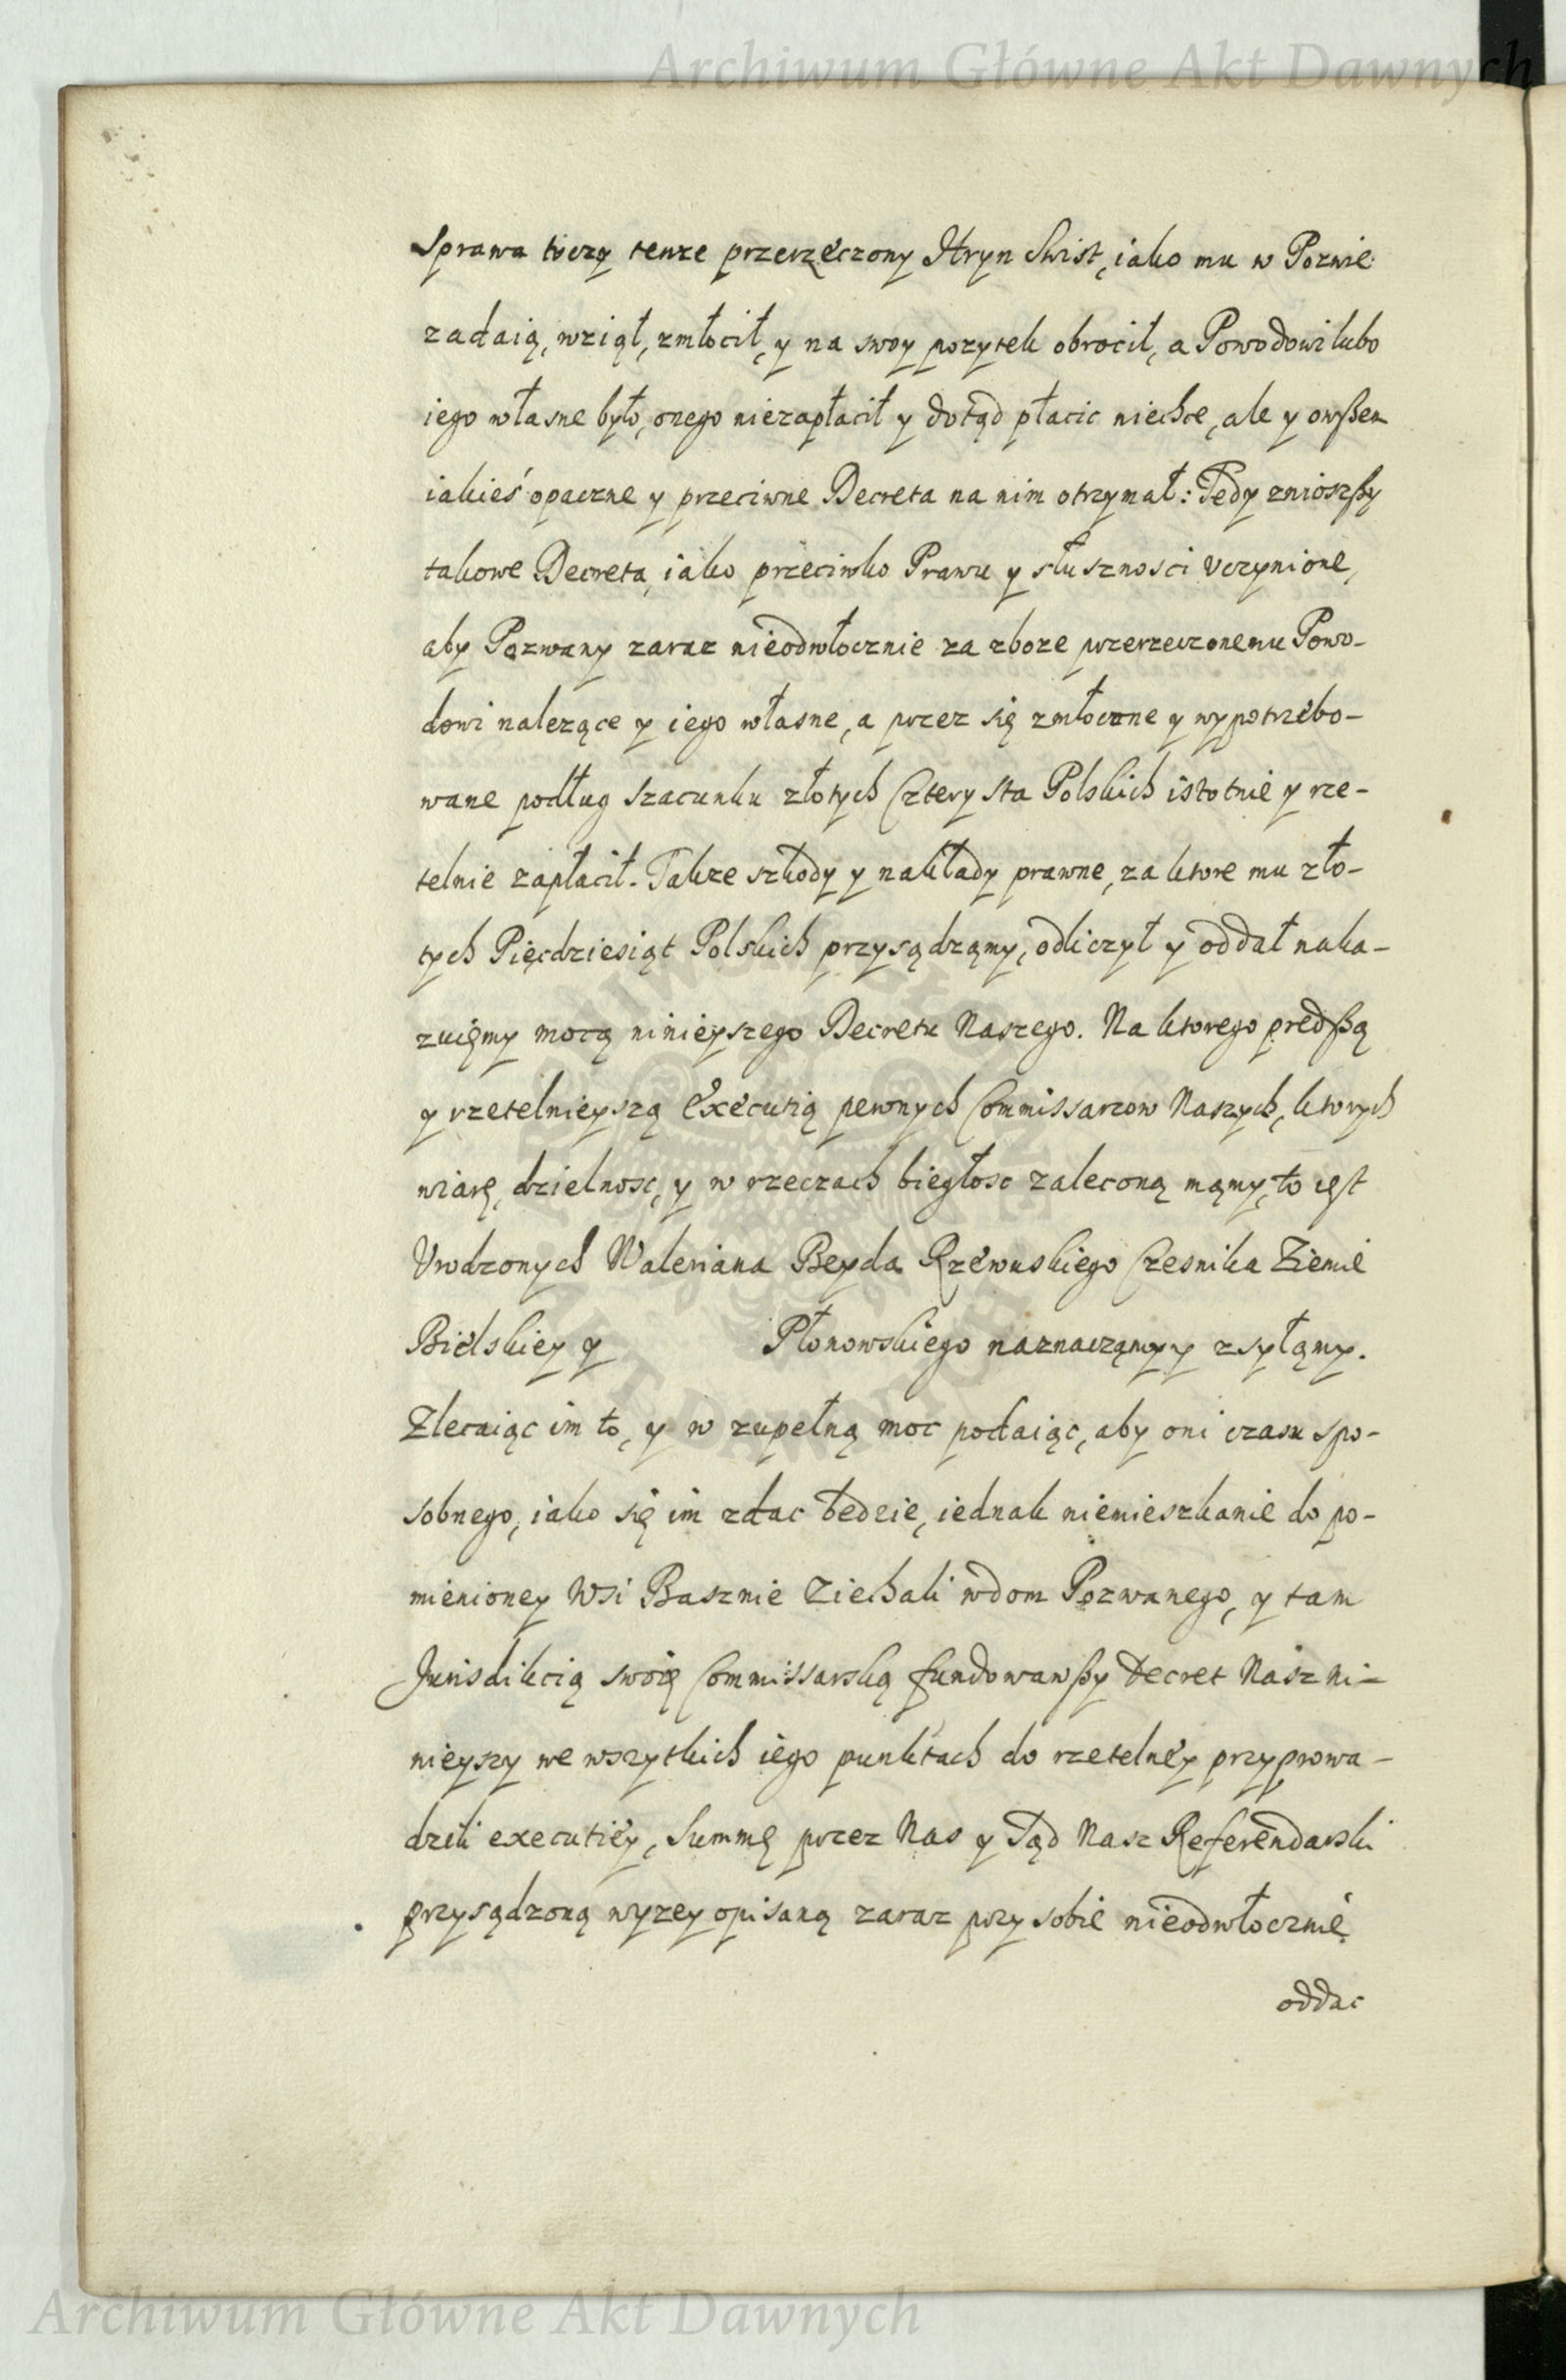 Archiwum Główne Akt Dawnych
sprawa toczy tenze przerzeczony Hryn Swist, iako mu w Pozwie
zadaią, wziął, zmłocił, y na swoy pozytek obrocił, a Powodowi lubo
iego własne było, onego niezapłacił y dotąd płacic niechce, ale y owßem
iakieś opaczne y przeciwne Decreta na nim otrzymał: Tedy znioszßy
takowe Decreta, iako przeciwko Prawu y słusznosci vczynione,
aby Pozwany zaraz nieodwłocznie za zboze przerzeczonemu Powo-
dowi nalezące y iego własne, a przez się zmłocone y wypotrzebo-
wane podług szacunku złotych Czterysta Polskich istotnie y rze-
telnie zapłacił. Takze szkody y nakłady prawne, za ktore mu zło-
tych Pięcdziesiąt Polskich przysądząmy, odliczył y oddał naka-
zuięmy mocą ninieyszego Decretu Naszego. Na ktorego prędßą
y rzetelnieyszą Executią pewnych Commissarzow Naszych, ktorych
wiarę, dzielnosc, y w rzeczach biegłosc zaleconą mąmy, to iest
Vrodzonych Waleriana Beyda Rzewuskiego Czesnika Ziemie
Bielskiey y Płonowskiego naznacząmy y zsyłąmy.
Zlecaiąc im to, y w zupełną moc podaiąc, aby oni czasu spo-
sobnego, iako się im zdac będzie, iednak niemieszkanie do po-
mienioney Wsi Basznie Ziechali w dom Pozwanego, y tam
Jurisdikcią swoię Commissarską fundowawßy Decret Nasz ni-
nieyszy we wszytkich iego punktach do rzetelney przyprowa-
dzili executiey, Summę przez Nas y Sąd Nasz Referendarski
przysądzoną wyzey opisaną zaraz przy sobie nieodwłocznie
oddac
Archiwum Główne Akt Dawnych